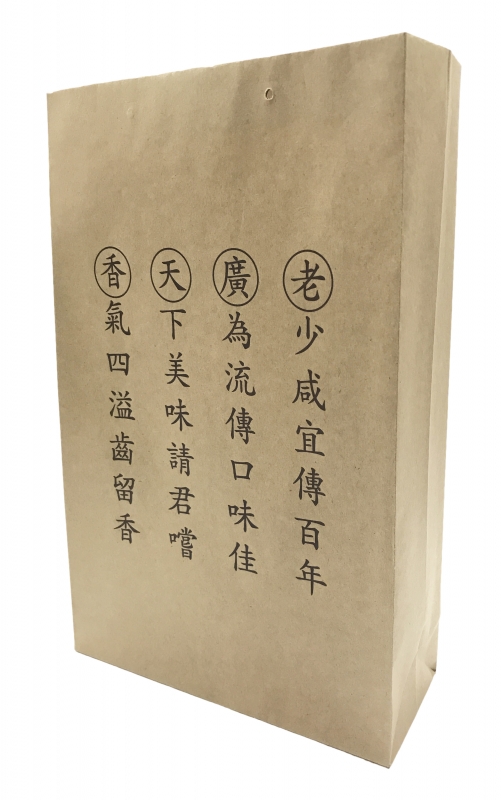 老少咸宜傳百年
廣為流傳口味佳
天下美味請君嚐
香氣四溢齒留香